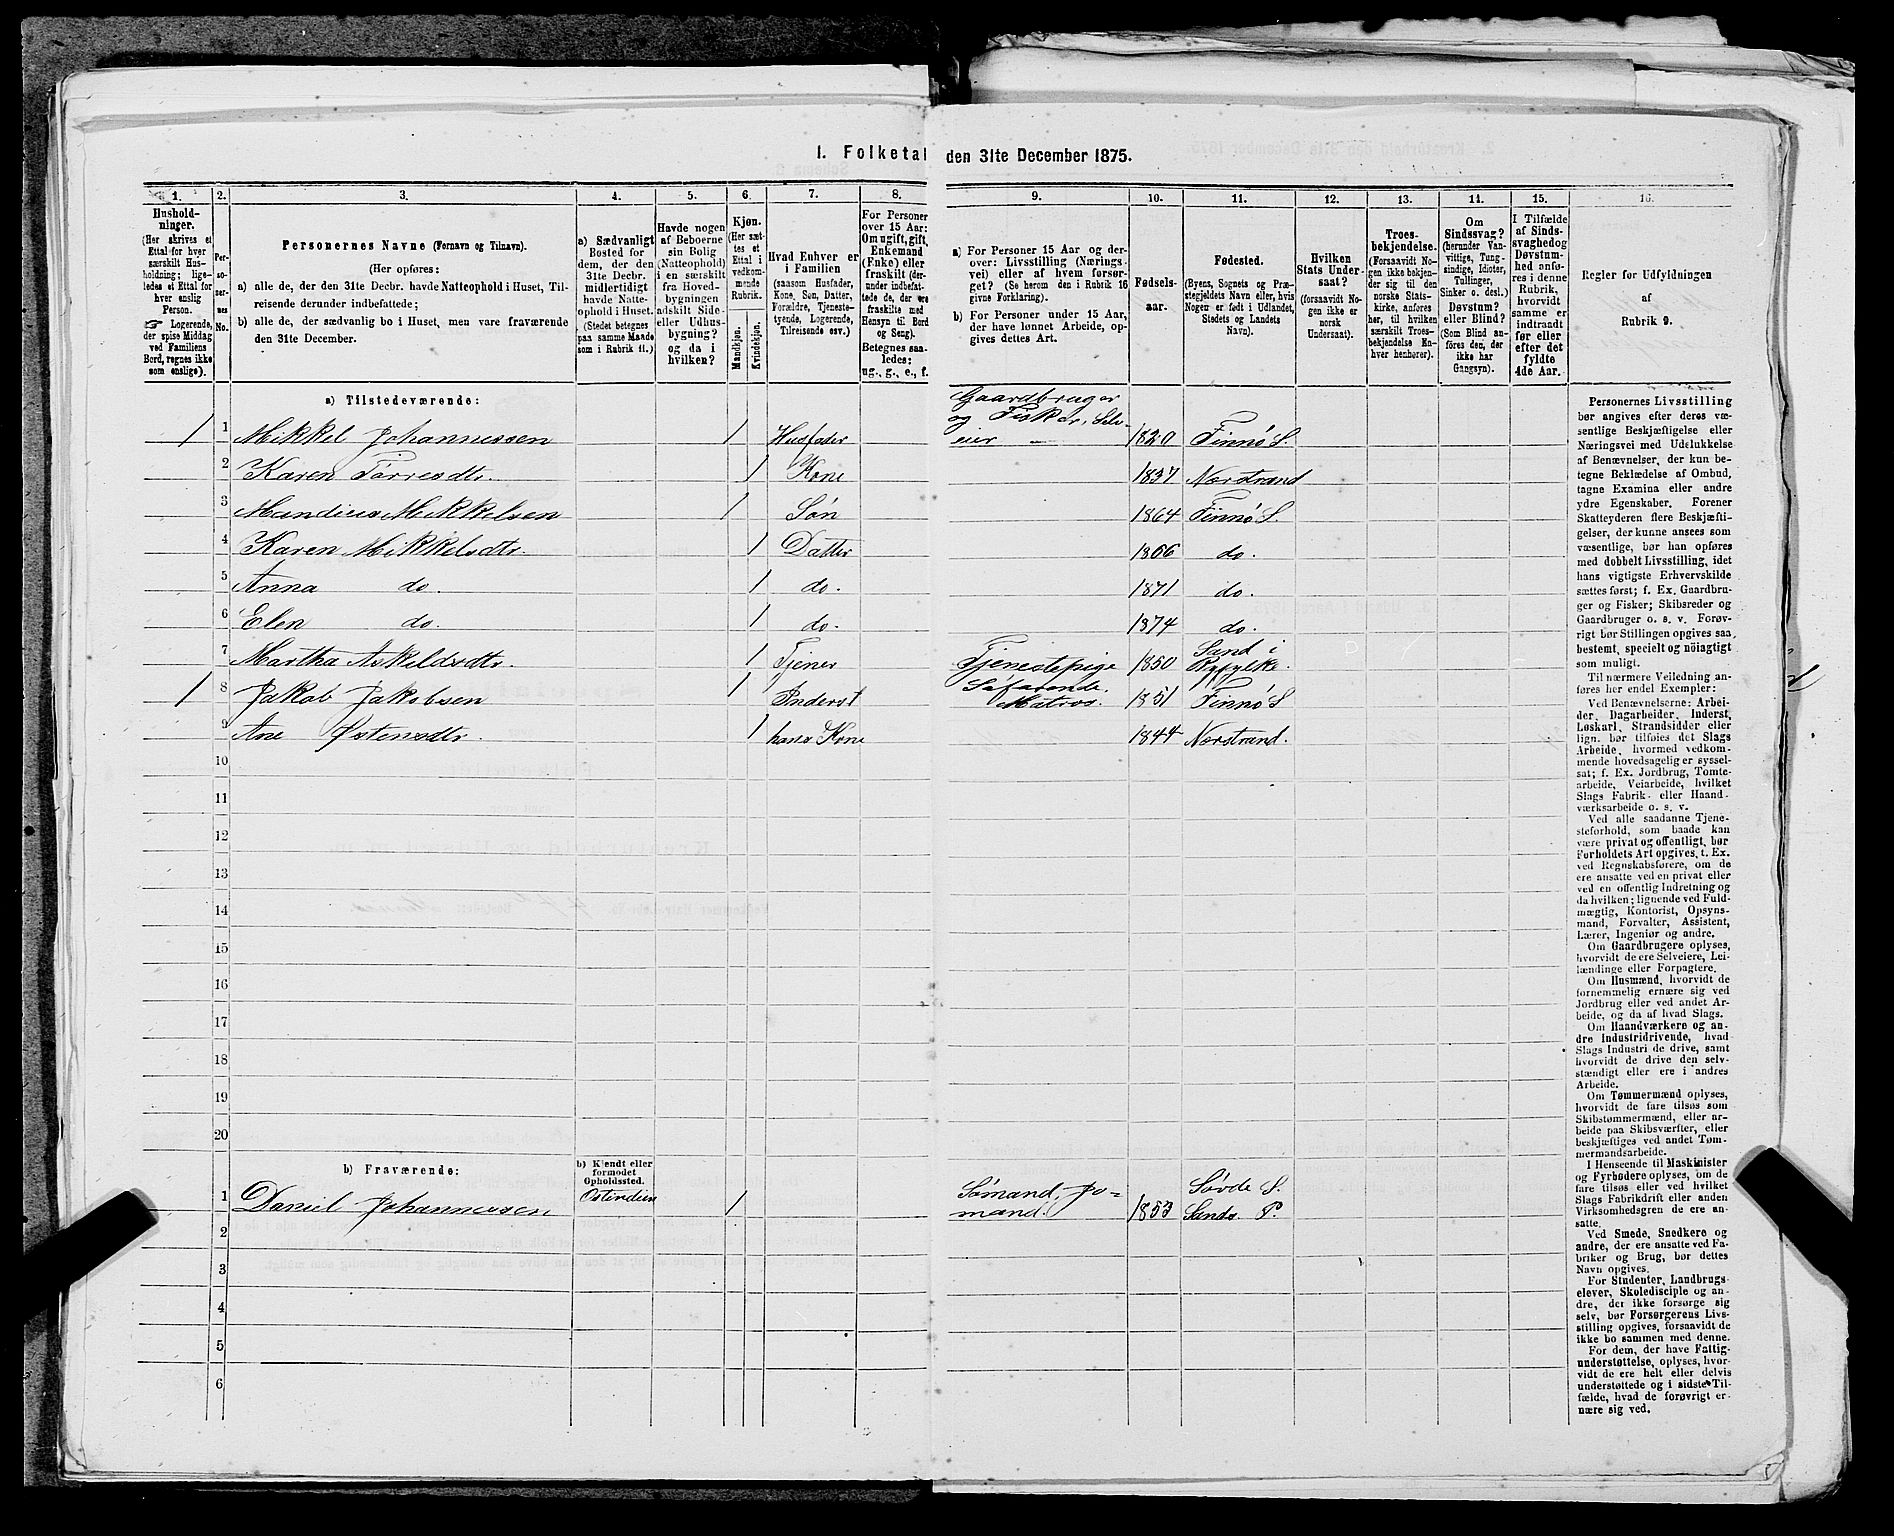 1. Folketal den 31te December 1875.
1. 2. 3. 4. 5. 6. 7. 8. 9. 10. 11. 12. 13. 14. 15. 16.
Hushold-
ninger.
(Her skrives et
Ettal for hver
særskilt Hus-
holdning; lige-
ledes et Ettal for
hver enslig
Person.
☞ Logerende,
der spise Middag
ved Familiens
Bord, regnes ikke
som enslige).
Per-
so-
ner-
nes
No.
Personernes Navne (Fornavn og Tilnavn).
(Her opføres:
a) alle de, der den 31te Decbr. havde Natteophold i Huset, Til-
reisende derunder indbefattede;
b) alle de, der sædvanlig bo i Huset, men vare fraværende
den 31te December.
a) Sædvanligt
Bosted for
dem, der den
31te Decbr.
midlertidigt
havde Natte-
ophold i Huset.
(Stedet betegnes
paa samme Maade
som i Rubrik 11.)
Havde nogen
af Beboerne
sin Bolig
(Natteophold)
i en særskilt
fra Hoved-
bygningen
adskilt Side-
eller Udhus-
bygning?
og da i
hvilken?
Kjøn.
(Her sæt-
tes et
Ettal i
vedkom-
mende
Rubrik.
Mandkjøn.
Kvindekjøn.
Hvad Enhver er
i Familien
(saasom Husfader,
Kone, Søn, Datter,
Forældre, Tjeneste-
tyende, Logerende,
Tilreisende osv.)
For Personer
over 15 Aar:
Om ugift, gift,
Enkemand
(Enke) eller
fraskilt (der-
under indbefat-
tede de, der ere
fraskilte med
Hensyn til Bord
og Seng).
Betegnes saa-
ledes:
ug., g., e., f.
a) For Personer 15 Aar og der-
over: Livsstilling (Nærings-
vei) eller af hvem forsør-
get? (Se herom den i Rubrik 16
givne Forklaring).
b) For Personer under 15 Aar,
der have lønnet Arbeide, op-
gives dettes Art.
Fødsels-
aar.
Fødested.
(Byens, Sognets og Præ-
stegjeldets Navn eller, hvis
Nogen er født i Udlandet,
Stedets og Landets
Navn).
Hvilken
Stats Under-
saat?
(forsaavidt No-
gen ikke er
norsk
Undersaat).
Troes-
bekjendelse.
(Forsaavidt No-
gen ikke bekjen-
der sig til den
norske Stats-
kirke, anføres
her, til hvilken
særskilt Troes-
bekjendelse En-
hver henhører).
Om
Sindssvag?
(herunder Van-
vittige, Tung-
sindige, Idioter,
Tullinger,
Sinker o. desl.)
Døvstum?
eller Blind?
(Som Blind an-
føres den, der
ikke har
Gangsyn).
I Tilfælde
af Sinds-
svaghed og
Døvstum-
hed anfø-
res i denne
Rubrik,
hvorvidt
samme er
indtraadt
før eller
efter det
fyldte
4de Aar.
Regler for Udfyldningen
af
Rubrik 9.
a) Tilstedeværende:
1 1 Mikkel Johannessen 1 Husfader Gaardbruger og Fisker, Selv-eier 1820 Finnø S.
2 Karen Tørresdtr. 1 Kone 1837 Nærstrand
3 Mandius Mikkelsen 1 Søn 1864 Finnø S.
4 Karen Mikkelsdtr. 1 Datter 1866 do.
5 Anna do. 1 do. 1871 do.
6 Elen do. 1 do. 1874 do.
7 Martha Askeldsdtr. 1 Tjener Tjenestepige 1850 Sand i Ryfylke.
1 8 Jakob Jakobsen 1 Inderst Søfarende. Matros. 1851 Finnø S
9 Ane Østensdtr. 1 hans Kone 1844 Nærstrand.
10
11
12
13
14
15
16
17
18
19
20
b) Fraværende:
b) Kjendt eller
formodet
Opholdssted.
1 Daniel Johannessen Ostindien 1 Sømand, Jo-mand. 1853 Søvde S. Sands P.
2
3
4
5
6
Personernes Livsstilling
bør angives efter deres væ-
sentlige Beskjæftigelse eller
Næringsvei med Udelukkelse
af Benævnelser, der kun be-
tegne Beklædelse af Ombud,
tagne Examina eller andre
ydre Egenskaber. Forener
Skatteyderen flere Beskjæfti-
gelser, der kunne ansees som
væsentlige, bør han opføres
med dobbelt Livsstilling, idet
hans vigtigste Erhvervskilde
sættes først; f. Ex. Gaardbru-
ger og Fisker; Skibsreder og
Gaardbruger o. s. v. Forøv-
rigt bør Stillingen opgives saa
bestemt, specielt og nøiagtigt
som muligt.
Til nærmere Veiledning an-
føres her endel Exempler:
Ved Benævnelserne: Arbei-
der, Dagarbeider, Inderst,
Løskarl, Strandsidder eller
lign. bør tilføies det Slags
Arbeide, hvormed vedkom-
mende hovedsagelig er syssel-
sat; f. Ex. Jordbrug, Tomte-
arbeide, Veiarbeide, hvilket
Slags Fabrik- eller Haand-
værksarbeide o. s. v.
Ved alle saadanne Tjene-
steforhold, som baade kan
være privat og offentligt, bør
Forholdets Art opgives, t. Ex.
ved Regnskabsførere, om de
ere ansatte ved en privat eller
ved en offentlig Indretning og
da hvilken; lignende ved Fuld-
mægtig, Kontorist, Opsyns-
mand, Forvalter, Assistent,
Lærer, Ingeniør og andre.
Om Gaardbrugere oplyses,
hvorvidt de ere Selveiere, Lei-
lændinge eller Forpagtere.
Om Husmænd, hvorvidt de
fornemmelig ernære sig ved
Jordbrug eller ved andet Ar-
beide, og da af hvad Slags.
Om Haandværkere og an-
dre Industridrivende, hvad
Slags Industri de drive, samt
hvorvidt de drive den selv-
stændigt eller ere i andres
Arbeide.
Om Tømmermænd oplyses,
hvorvidt de fare tilsøs som
Skibstømmermænd, eller ar-
beide paa Skibsværfter, eller
beskjæftiges ved andet Tøm-
mermandsarbeide.
I Henseende til Maskinister
og Fyrbødere oplyses, om de
fare tilsøs eller ved hvilket
Slags Fabrikdrift eller anden
Virksomhedsgren de ere an-
satte.
Ved Smede, Snedkere og
andre, der ere ansatte ved Fa-
briker og Brug, bør dettes
Navn opgives.
For Studenter, Landbrugs-
elever, Skoledisciple og an-
dre, der ikke forsørge sig
selv, bør Forsørgerens Livs-
stilling opgives, forsaavidt de
ikke bo sammen med denne.
For dem, der have Fattig-
understøttelse, oplyses, hvor-
vidt de ere helt eller delvis
understøttede og i sidste Til-
fælde, hvad de forøvrigt er-
nære sig ved.